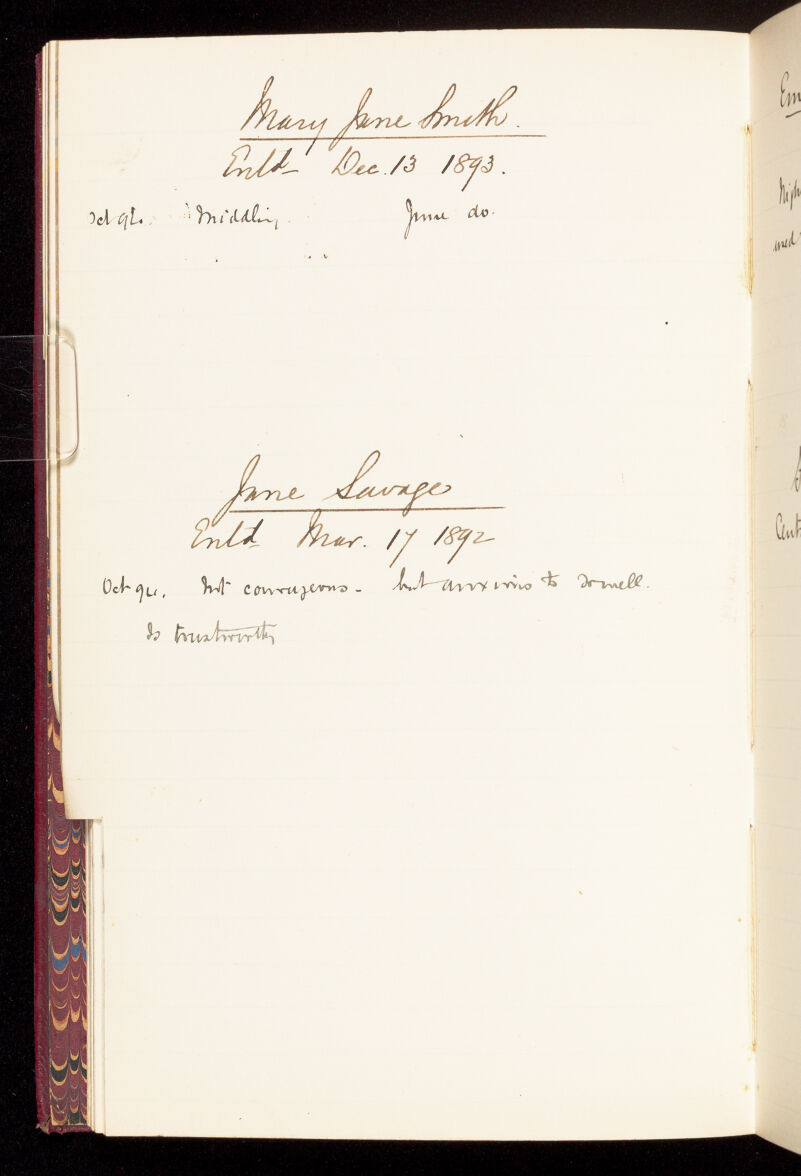 Mary Jane Smith.
Entd Dec. 13 1893.
Oct 94. Middling. June do.
Jane Savage
Entd Mar. 17 1892
Oct 94. Not courageous - but anxious to do well.
Is trustworthy
Em
Nigh
used
Cent